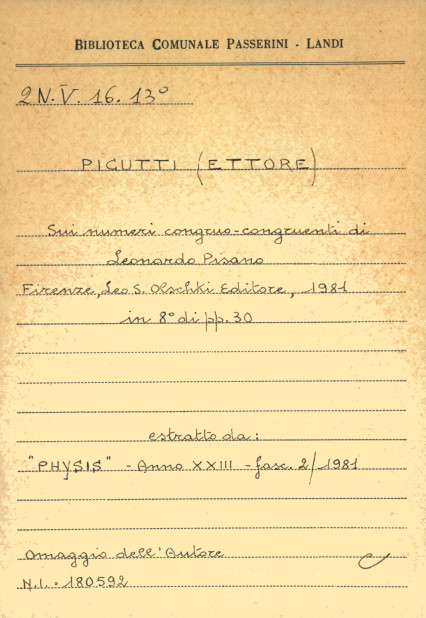 BIBLIOTECA COMUNALE PASSERINI - LANDI
2 N. V. 16. 13°
PICUTTI (ETTORE)
Sui numeri congruo-congruenti di
Leonardo Pisano
Firenze, Leo S. Olschki Editore, 1981
in 8° di pp. 30
estratto da:
"PHYSIS" - Anno XXIII - fasc. 2/1981
Omaggio dell'Autore
N.I. - 180592